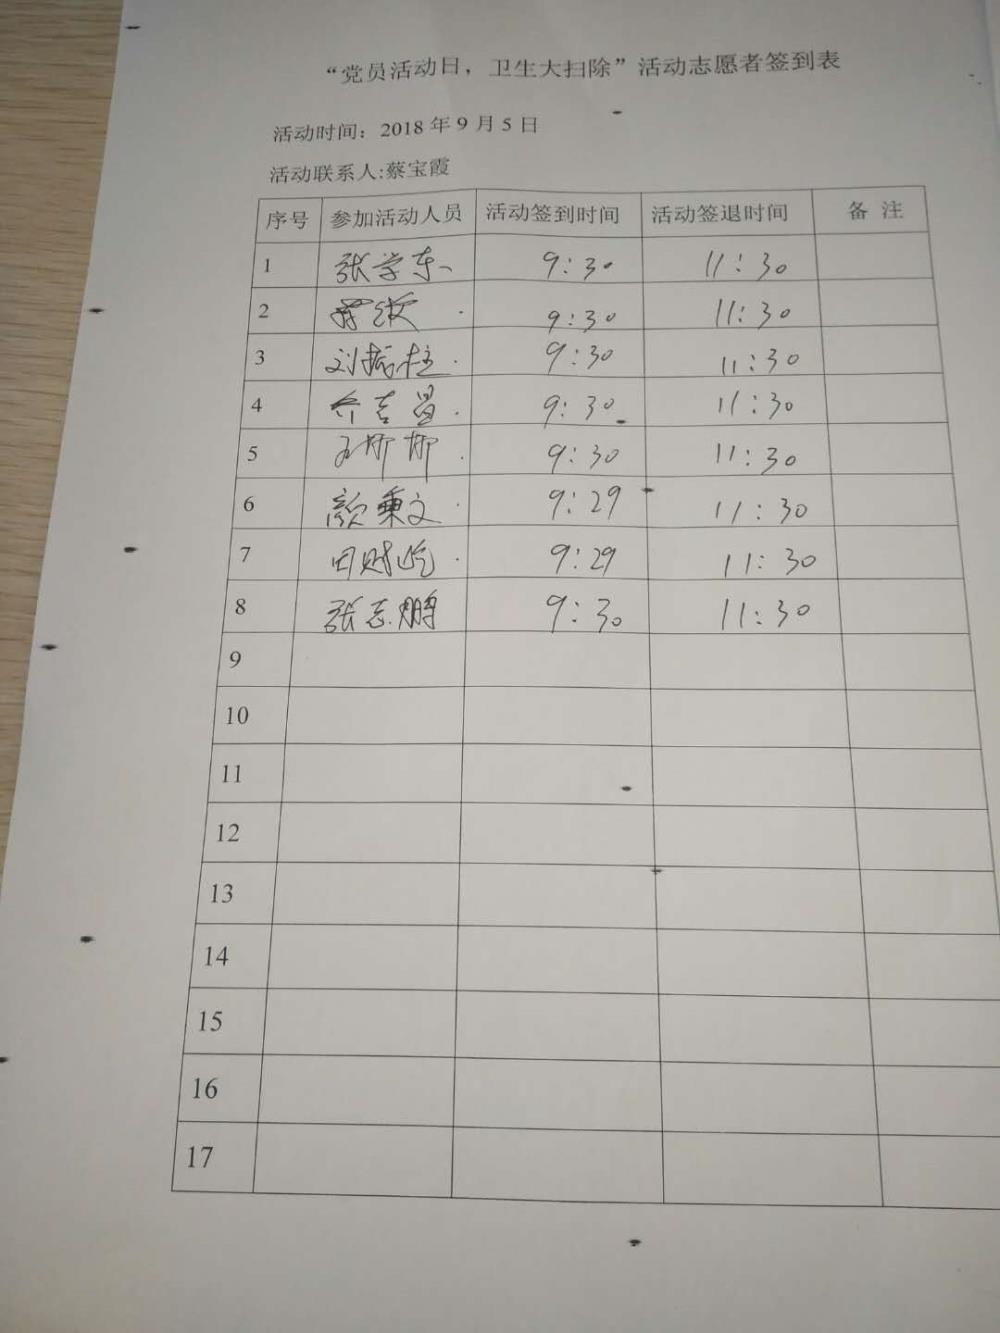 “党员活动日，卫生大扫除”活动志愿者签到表
活动时间：2018 年 9 月 5 日
活动联系人:蔡宝霞
序号 参加活动人员 活动签到时间 活动签退时间 备 注
1 张学东 9:30 11:30
2 9:30 11:30
3 刘振柱 9:30 11:30
4 乔吉昌 9:30 11:30
5 王娜娜 9:30 11:30
6 颜秉文 9:29 11:30
7 田财 9:29 11:30
8 张志鹏 9:30 11:30
9
10
11
12
13
14
15
16
17